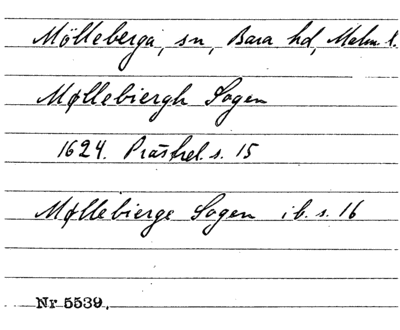 Mölleberga, sn, Bara hd, Malm. l.
Møllebiergh Sogen
1624. Prästrel. s. 15
Møllebierge Sogen ib. s. 16
Nr 5539.